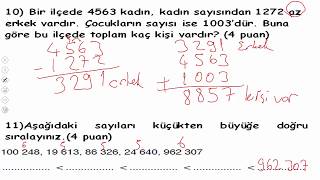 10) Bir ilçede 4563 kadın, kadın sayısından 1272 az
erkek vardır. Çocukların sayısı ise 1003'dür. Buna
göre bu ilçede toplam kaç kişi vardır? (4 puan)
4563
- 1272
3291 erkek
3291 Erkek
4563
+ 1003
8857 kişi var
11)Aşağıdaki sayıları küçükten büyüğe doğru
sıralayınız.(4 puan)
6 5 5 5 6
100 248, 19 613, 86 326, 24 640, 962 307
.............. < .............. < .............. < .............. < 962.307